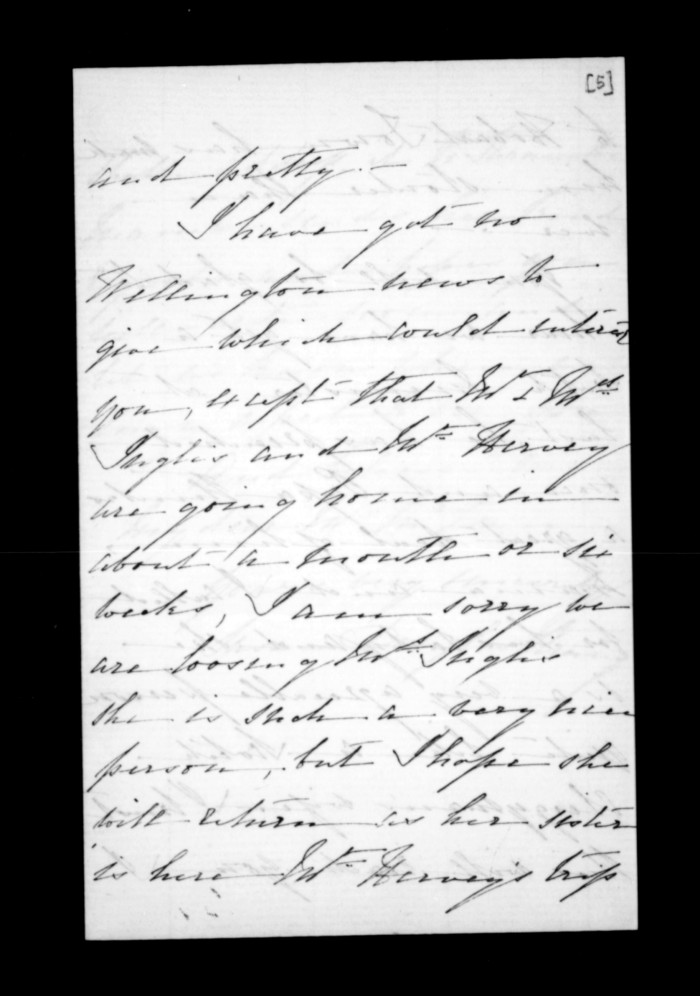 [5]
and pretty.—
I have got no
Wellington news to
give which could interest
you, except that Mr & Mrs
Inglis and Mrs Hervey
are going home in
about a month or six
weeks, I am sorry we
are loosing Mrs Inglis
she is such a very nice
person, but I hope she
will return as her sister
is here Mrs Hervey's trip